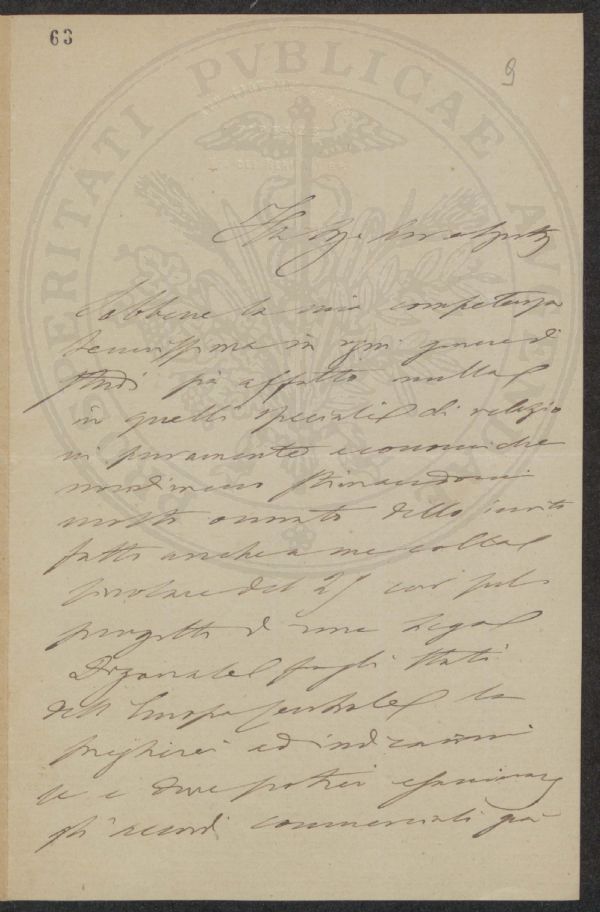 63
9
PROSPERITATI PVBLICAE AVGENDAE
Sebbene la mia competenza
tenuissima in ogni genere di
studi sia affatto nulla
in quelli speciali di relazio
ni puramente economiche
nondimeno
molto onorato dello invito
fatto anche a me colla
circolare del 29 sul
progetto di una Lega
Doganale fra gli Stati
dell'Europa Centrale la
pregherei ad indicarmi
se e dove potrei esaminare
gli accordi commerciali già